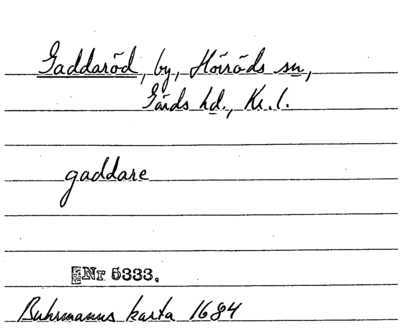 Gaddaröd, by, Hörröds sn,
Gärds hd., Kr. l.
gaddare
Nr 5333.
Buhrmanns karta 1684